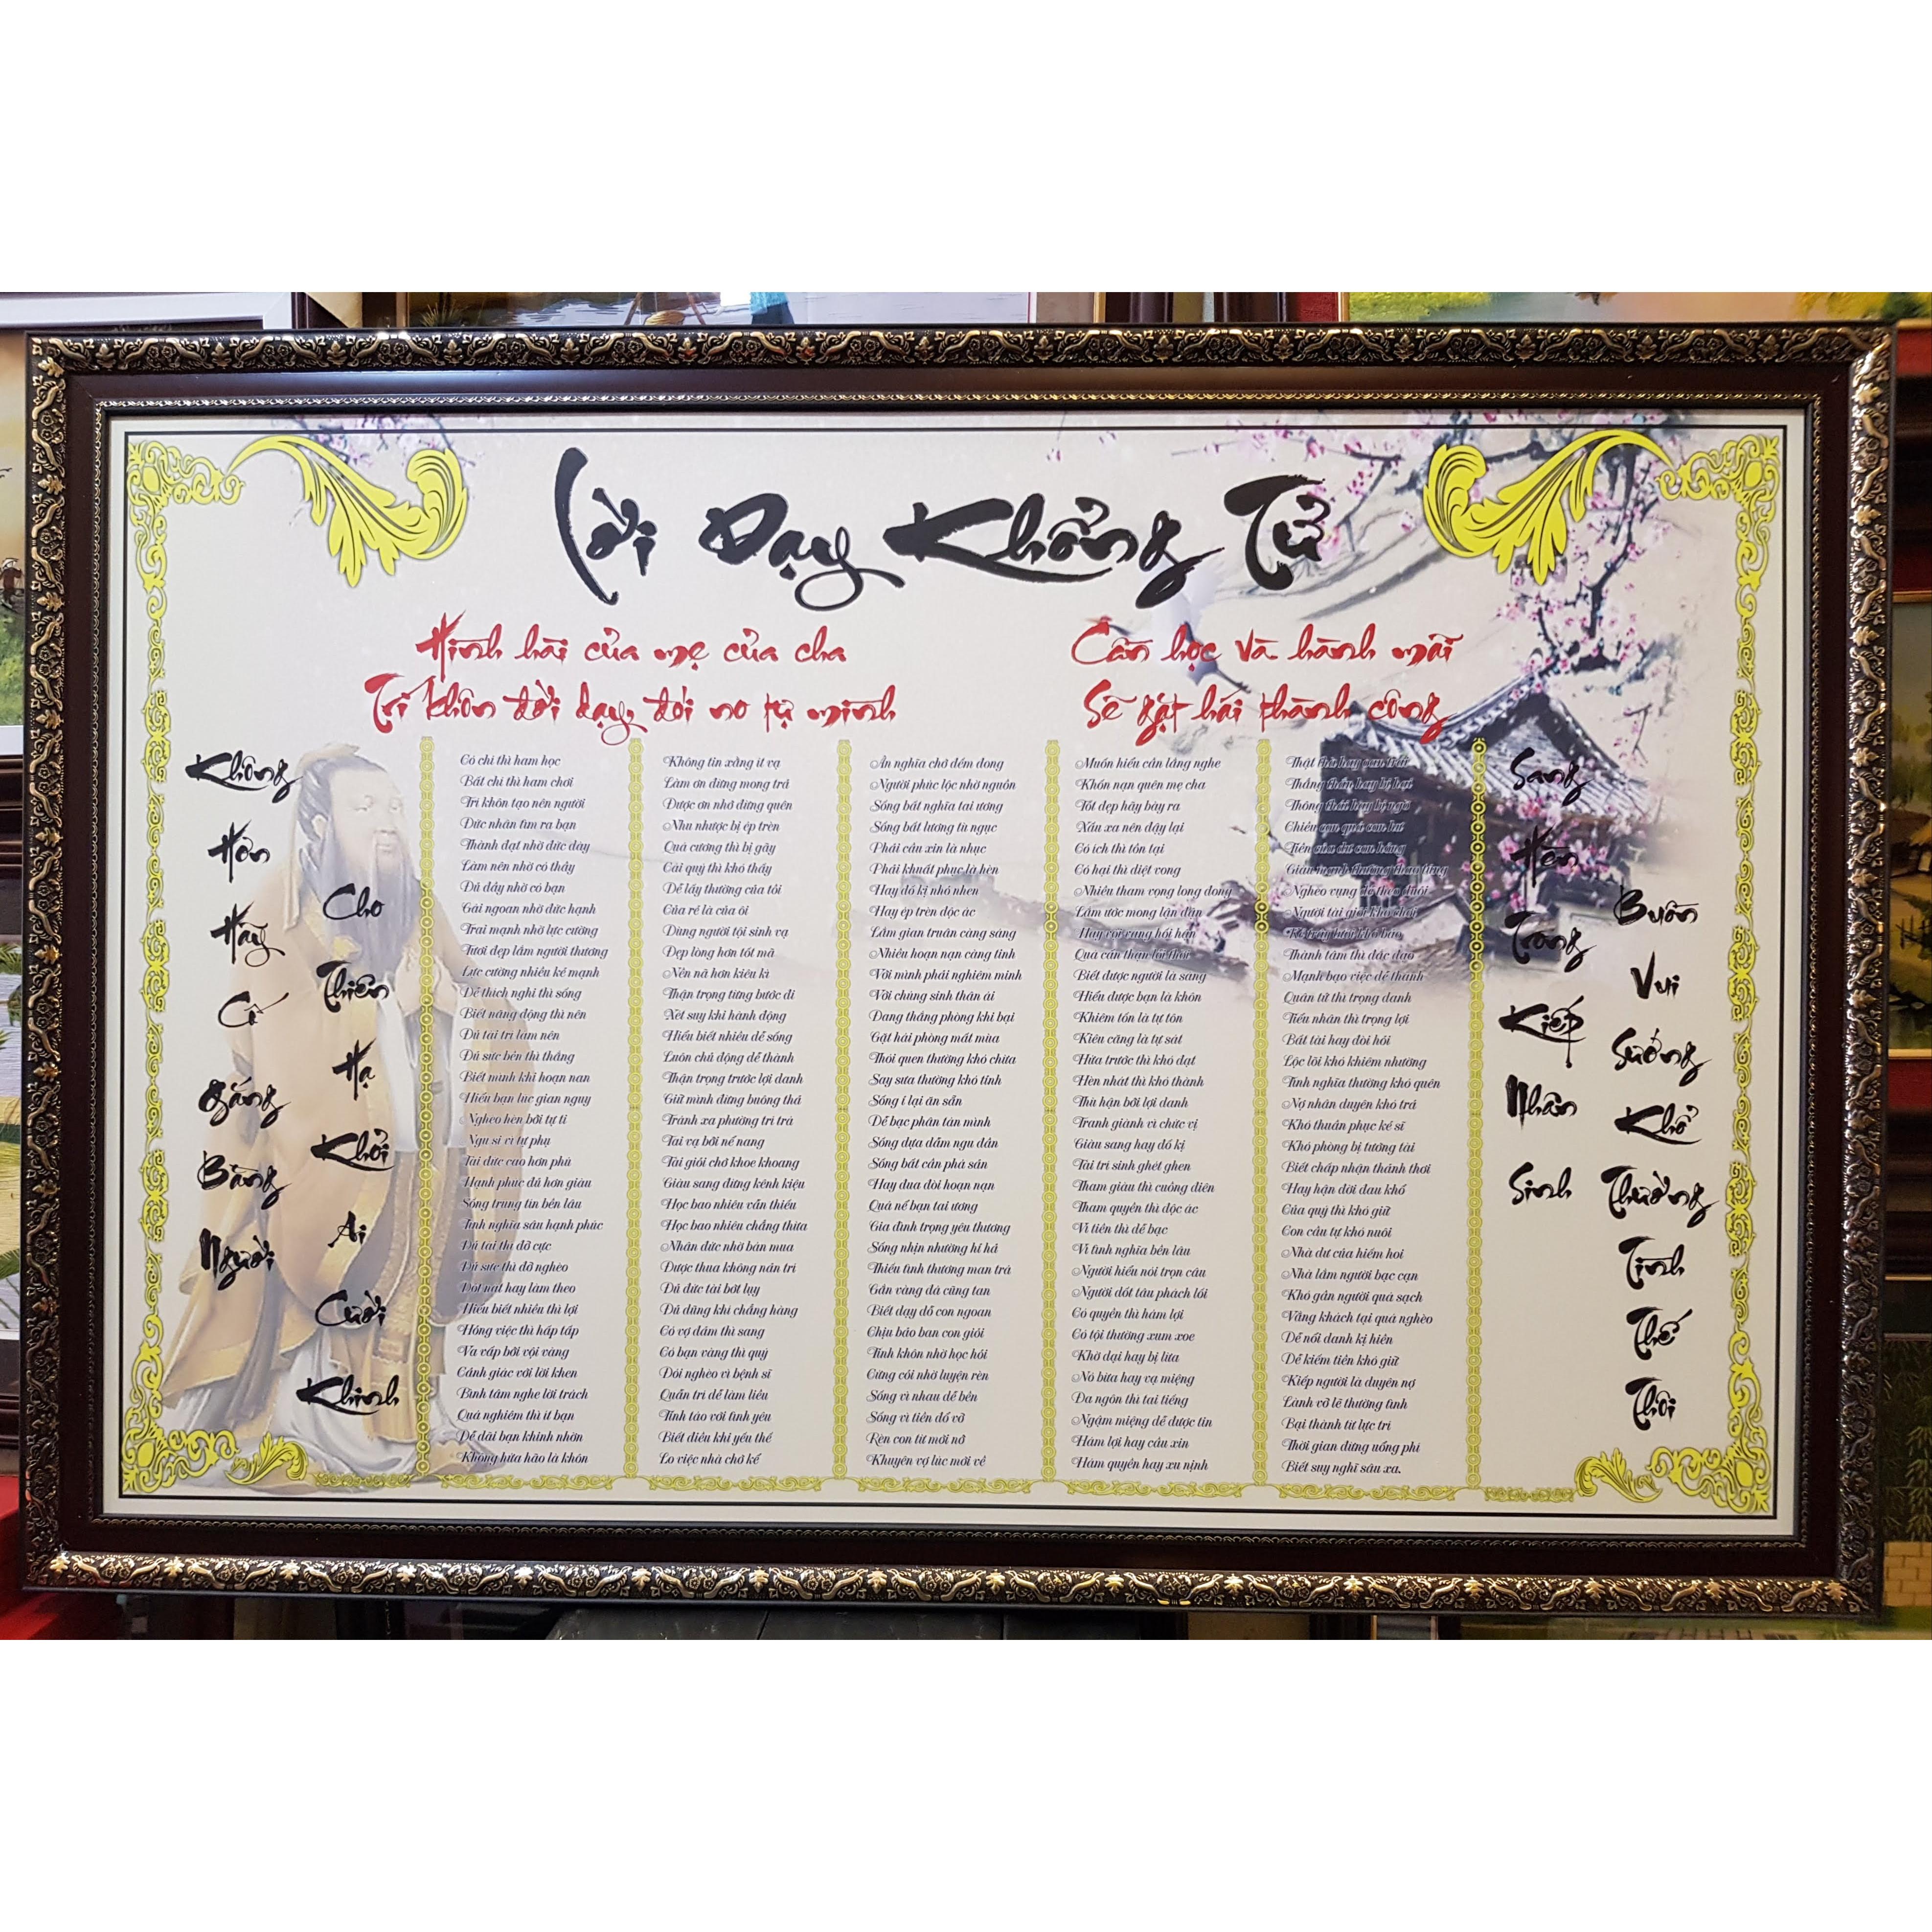 Lời Dạy Khổng Tử
Hình hài của mẹ của cha
Trí khôn đời dạy, đói no tự mình
Cần học và hành mãi
Sẽ gặt hái thành công
Không
Hơn
Hãy
Cố
gắng
Bằng
Người
Cho
Thiên
Hạ
Khỏi
Ai
Cười
Khinh
Có chí thì ham học
Bất chí thì ham chơi
Trí khôn tạo nên người
Đức nhân tìm ra bạn
Thành đạt nhờ đức dày
Làm nên nhờ có thầy
Đủ đầy nhờ có bạn
Gái ngoan nhờ đức hạnh
Trai mạnh nhờ lực cường
Tươi đẹp lắm người thương
Lực cường nhiều kẻ mạnh
Dễ thích nghi thì sống
Biết năng động thì nên
Đủ tài trí làm nên
Đủ sức bền thì thắng
Biết mình khi hoạn nạn
Hiểu bạn lúc gian nguy
Nghèo hèn bởi tự ti
Ngu si vì tự phụ
Tài đức cao hơn phú
Hạnh phúc đủ hơn giàu
Sống trung tín bền lâu
Tình nghĩa sâu hạnh phúc
Đủ tài thì đỡ cực
Đủ sức thì đỡ nghèo
Dốt nát hay làm theo
Hiểu biết nhiều thì lợi
Hỏng việc thì hấp tấp
Va vấp bởi vội vàng
Cảnh giác với lời khen
Bình tâm nghe lời trách
Quá nghiêm thì ít bạn
Dễ dãi bạn khinh nhờn
Không hứa hão là khôn
Không tin xằng ít vạ
Làm ơn đừng mong trả
Được ơn nhớ đừng quên
Nhu nhược bị ép trên
Quá cương thì bị gãy
Cái quý thì khó thấy
Dễ lấy thường của tồi
Của rẻ là của ôi
Dùng người tồi sinh vạ
Đẹp lòng hơn tốt mã
Nền nã hơn kiêu kì
Thận trọng từng bước đi
Xét suy khi hành động
Hiểu biết nhiều dễ sống
Luôn chủ động dễ thành
Thận trọng trước lợi danh
Giữ mình đừng buông thả
Tránh xa phường trí trá
Tai vạ bởi nể nang
Tài giỏi chớ khoe khoang
Giàu sang đừng kênh kiệu
Học bao nhiêu vẫn thiếu
Học bao nhiêu chẳng thừa
Nhân đức nhờ bán mua
Được thua không nản trí
Đủ đức tài bớt lụy
Đủ dũng khí chẳng hàng
Có vợ đảm thì sang
Có bạn vàng thì quý
Đói nghèo vì bệnh sĩ
Quẫn trí dễ làm liều
Tỉnh táo với tình yêu
Biết điều khi yếu thế
Lo việc nhà chớ kể
Ân nghĩa chớ đếm đong
Người phúc lộc nhớ nguồn
Sống bất nghĩa tai ương
Sống bất lương tù ngục
Phải cầu xin là nhục
Phải khuất phục là hèn
Hay đố kị nhỏ nhen
Hay ép trên độc ác
Lắm gian truân càng sáng
Nhiều hoạn nạn càng tinh
Với mình phải nghiêm minh
Với chúng sinh thân ái
Đang thắng phòng khi bại
Gặt hái phòng mất mùa
Thói quen thường khó chừa
Say sưa thường khó tỉnh
Sống ỉ lại ăn sẵn
Dễ bạc phận tán mình
Sống dựa dẫm ngu đần
Sống bất cần phá sản
Hay đua đòi hoạn nạn
Quá nể bạn tai ương
Gia đình trọng yêu thương
Sống nhịn nhường hỉ hả
Thiếu tình thương man trá
Gần vàng đá cũng tan
Biết dạy dỗ con ngoan
Chịu bảo ban con giỏi
Tinh khôn nhờ học hỏi
Cứng cỏi nhờ luyện rèn
Sống vì nhau dễ bền
Sống vì tiền đổ vỡ
Rèn con từ mới nở
Khuyên vợ lúc mới về
Muốn hiểu cần lắng nghe
Khốn nạn quên mẹ cha
Tốt đẹp hãy bày ra
Xấu xa nên đậy lại
Có ích thì tồn tại
Có hại thì diệt vong
Nhiều tham vọng long đong
Lắm ước mong lận đận
Hay vội vàng hối hận
Quá cẩn thận lỗi thời
Biết được người là sang
Hiểu được bạn là khôn
Khiêm tốn là tự tôn
Kiêu căng là tự sát
Hứa trước thì khó đạt
Hèn nhát thì khó thành
Thù hận bởi lợi danh
Tranh giành vì chức vị
Giàu sang hay đố kị
Tài trí sinh ghét ghen
Tham giàu thì cuồng điên
Tham quyền thì độc ác
Vì tiền thì dễ bạc
Vì tình nghĩa bền lâu
Người hiểu nói trọn câu
Người dốt tâu phách lối
Có quyền thì hám lợi
Có tội thường xum xoe
Khờ dại hay bị lừa
Nỏ bừa hay vạ miệng
Đa ngôn thì tai tiếng
Ngậm miệng dễ được tin
Hám lợi hay cầu xin
Hám quyền hay xu nịnh
Thật thà hay oan trái
Thẳng thắn hay bị hại
Thông thái hay bị ngờ
Chiều con quá con hư
Tiền của dư con hỏng
Nghèo vụng dễ theo đuôi
Người tài giỏi khó chơi
Thành tâm thì đắc đạo
Mạnh bạo việc dễ thành
Quân tử thì trọng danh
Tiểu nhân thì trọng lợi
Bất tài hay đòi hỏi
Lọc lõi khó khiêm nhường
Tình nghĩa thường khó quên
Nợ nhân duyên khó trả
Khó thuần phục kẻ sĩ
Khó phòng bị tướng tài
Biết chấp nhận thảnh thơi
Hay hận đời đau khổ
Của quý thì khó giữ
Con cầu tự khó nuôi
Nhà dư của hiếm hoi
Nhà lắm người bạc cạn
Khó gần người quá sạch
Vắng khách tại quá nghèo
Dễ nổi danh kị hiền
Dễ kiếm tiền khó giữ
Kiếp người là duyên nợ
Lành vỡ lẽ thường tình
Bại thành từ lực trí
Thời gian đừng uổng phí
Biết suy nghĩ sâu xa.
Sang
Hèn
Trong
Kiếp
Nhân
Sinh
Buồn
Vui
Sướng
Khổ
Thường
Tình
Thế
Thôi